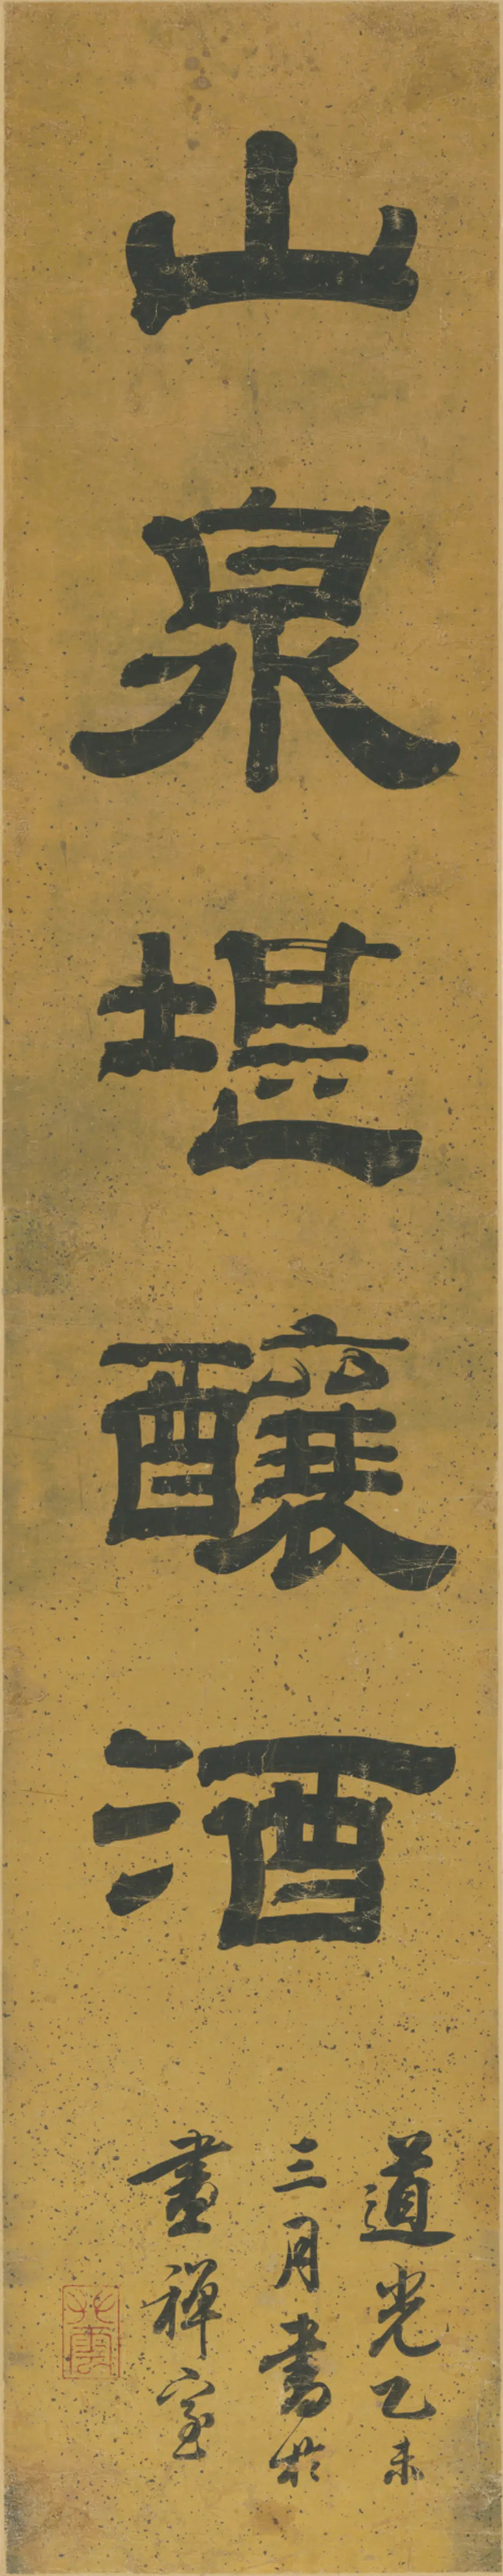 山泉堪釀酒
道光乙未
三月書於
畫禪室